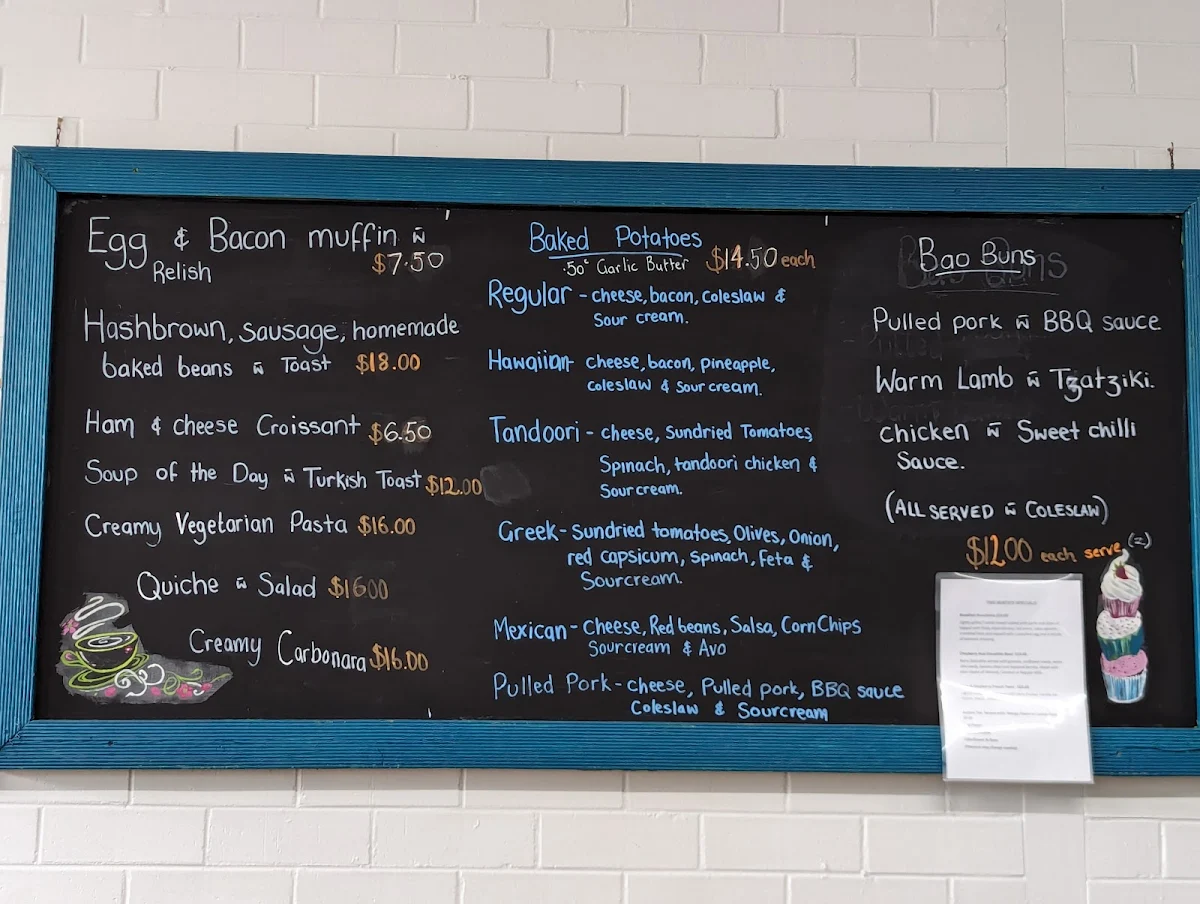 Egg & Bacon muffin w̃
$7.50
Relish
Hashbrown, sausage, homemade
baked beans w̃ Toast $18.00
Ham & cheese Croissant $6.50
Soup of the Day w̃ Turkish Toast $12.00
Creamy Vegetarian Pasta $16.00
Quiche w̃ Salad $1600
Creamy Carbonara $16.00
Baked Potatoes
.50c Garlic Butter $14.50 each
Regular - cheese, bacon, coleslaw &
Sour cream.
Hawaiian - cheese, bacon, pineapple,
coleslaw & sour cream.
Tandoori - cheese, Sundried Tomatoes,
Spinach, tandoori chicken &
Sourcream.
Greek - Sundried tomatoes, Olives, Onion,
red capsicum, spinach, Feta &
Sourcream.
Mexican - Cheese, Red beans, Salsa, Corn Chips
Sourcream & Avo
Pulled Pork - cheese, Pulled pork, BBQ sauce
Coleslaw & Sourcream
Bao Buns
Pulled pork w̃ BBQ sauce
Warm Lamb w̃ Tzatziki.
chicken w̃ Sweet chilli
Sauce.
(ALL SERVED w̃ COLESLAW)
$12.00 each serve (2)